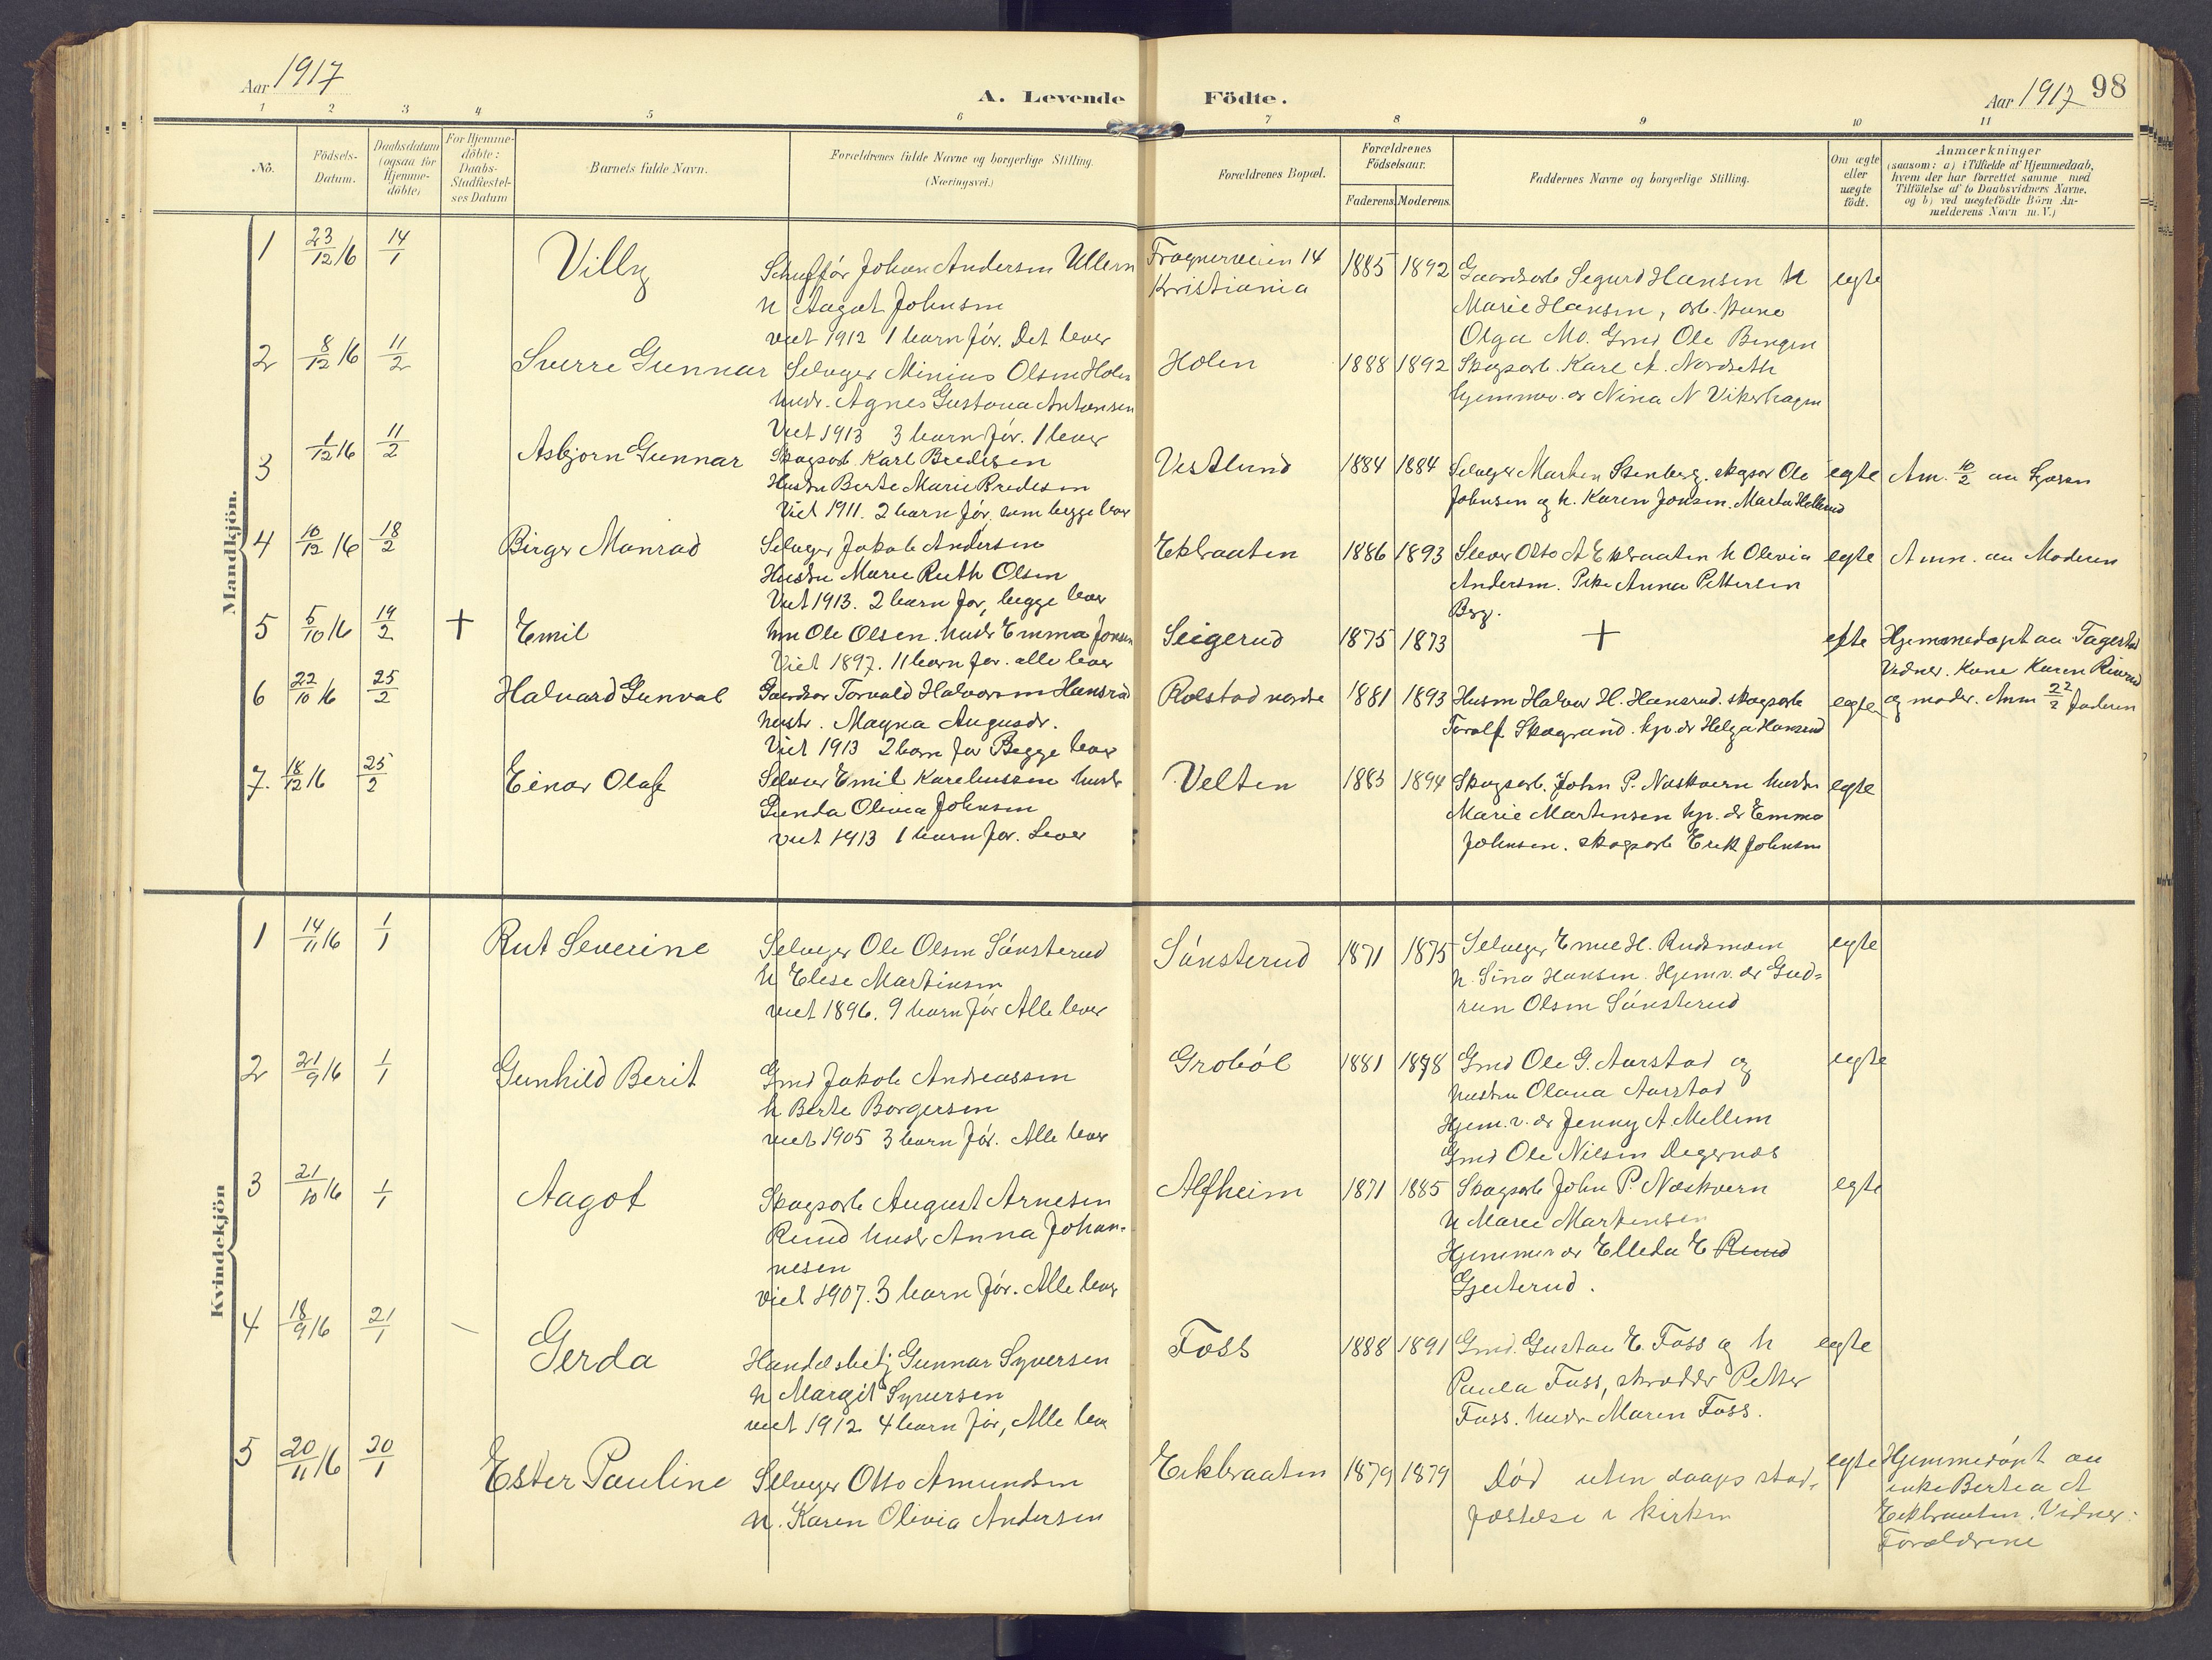 Aar 1917
A. Levende Födte.
Aar 1917
98
1 2 3 4 5 6 7 8 9 10 11
No.
Födsels-Datum.
Daabsdatum (ogsaa for Hjemme-döbte)
For Hjemme-döbte: Daabs-Stadfæstel-ses Datum
Barnets fulde Navn.
Forældrenes fulde Navne og borgerlige Stilling. (Næringsvei.)
Forældrenes Bopæl.
Forældrenes Födselsaar.
Faderens. Moderens.
Faddernes Navne og borgerlige Stilling.
Om ægte eller uægte födt.
Anmærkninger
(saasom: a) i Tilfælde af Hjemmedaab,
hvem der har forrettet samme med
Tilföielse af to Daabsvidners Navne,
og b) ved uægtefödte Börn An-
melderens Navn m. V.)
Mandkjön.
1 23/12 16 14/1 Villy
Schuffór Johan Andersen Ullern
h Aagot Johnsen
viet 1912 1 barn fór. Det lever
Frognerveien 14
Kristiania
1885 1892
Gaardsarb Segurd Hansen h
Marie Hansen, arb. kune
Olga Mo. Gmd Ole Bergen
egte
2 8/12 16 11/2 Sverre Gunnar
Selveger Minius Olsen Holen
husdr. Agnes Gustava Antonsen
Viet 1913 3 barn fór. 1 lever
Holen
1888 1892
Skogsarb. Karl A. Nordseth
hjemmev. dr Nina N Vikerhagen
3 1/12 16 11/2 Asbjorn Gunnar
Skogsarb Karl Bredesen
Hustru Berte Marie Bredesen
Viet 1911. 2 barn fór. som begge lever
Vestlund
1884 1884
Selveger Marten Stenberg. skogsar Ole
Johnsen og h. Karen Jonsen. Marta Hellerud
egte
Am. 10/2 av
4 10/12 16 18/2 Birger Monrad
Selveger Jakob Andersen
Hustru Marie Ruth Olsen
Viet 1913. 2 barn før, begge lever
Ekbraaten
1886 1893
Seveer Otto A Ekbraaten h Olivia
Andersen. Pike Anna Pettersen
Berg.
egte
Anm. av Moderen
5 5/10 16 14/2 + Emil
hm Ole Olsen. husdr Emma Jonsen
Viet 1897. 11 barn før. alle lever
Seigerud
1875 1873
+
egte
Hjemmedøpt av
Vidner. Kone Karen
og moder. Anm 22/2 faderen
6 22/10 16 25/2 Halvard Gunval
Gaardsar Torvald Halvorsen Hansrud
hustr. Magna Augusdr.
Viet 1913 2 barn før Begge lever
Rolstad nordre
1881 1893
Husm Halvor H. Hansrud. skogsarb
Toralf Skogrand. hp. dr Helga Hansrud
egte
7. 18/12 16 25/2 Einar Olaf
Selveier Emil Kareliussen hustr
Gunda Olivia Johnsen
viet 1913 1 barn før. Lever
Velten
1883 1894
Skogsarb. John P. Næskvern hustru
Marie Martinsen hp. dr Emma
Johnsen. skogsarb Erik Johnsen
egte
Kvindekjön
1 14/11 16 1/1 Rut Severine
Selveger Ole Olsen Sónsterud
h Elese Martinsen
viet 1896. 9 barn fór Alle lever
Sónsterud
1871 1875
Selveger Emil H. Rudsmoen
h. Sina Hansen. Hjemv. dr Gud-
run Olsen Sónsterud
egte
2 21/9 16 1/1 Gunhild Berit
Gmd Jakob Andreassen
h Berte Borgersen
viet 1905 3 barn fór. Alle lever
Groból
1881 1878
Gmd Ole G. Aurstad og
hustru Olava Aurstad
Hjem. v. dr Jenny A. Mellem
Gmd Ole Nilsen Degernæs
egte
3 21/10 16 1/1 Aagot
Skogsarb August Arnesen
Ruud husdr Anna Johan-
nesen
Viet 1907. 3 barn fór. Alle lever
Alfheim
1871 1885
Skogsarb John P. Næskvern
h Marie Martinsen
Hjemmev dr Elleda E Ruud
Gjeterud.
egte
4 18/9 16 21/1 – Gerda
Handelsbetj Gunnar Syversen
h Margit Syversen
viet 1912 4 barn fór, Alle lever
Foss
1888 1891
Gmd. Gustav E. Foss og h
Paula Foss, skrædder Petter
Foss. husdr Maren Foss.
egte
5 20/11 16 20/1 Ester Pauline
Selveger Otto Amundsen
h. Karen Olivia Andersen
Eekbraaten
1879 1879
Død uten daaps stad-
fæstese i kirken
egte
Hjemmedøpt av
enke Bertea A
Eekbraaten. Vidner:
Forældrene